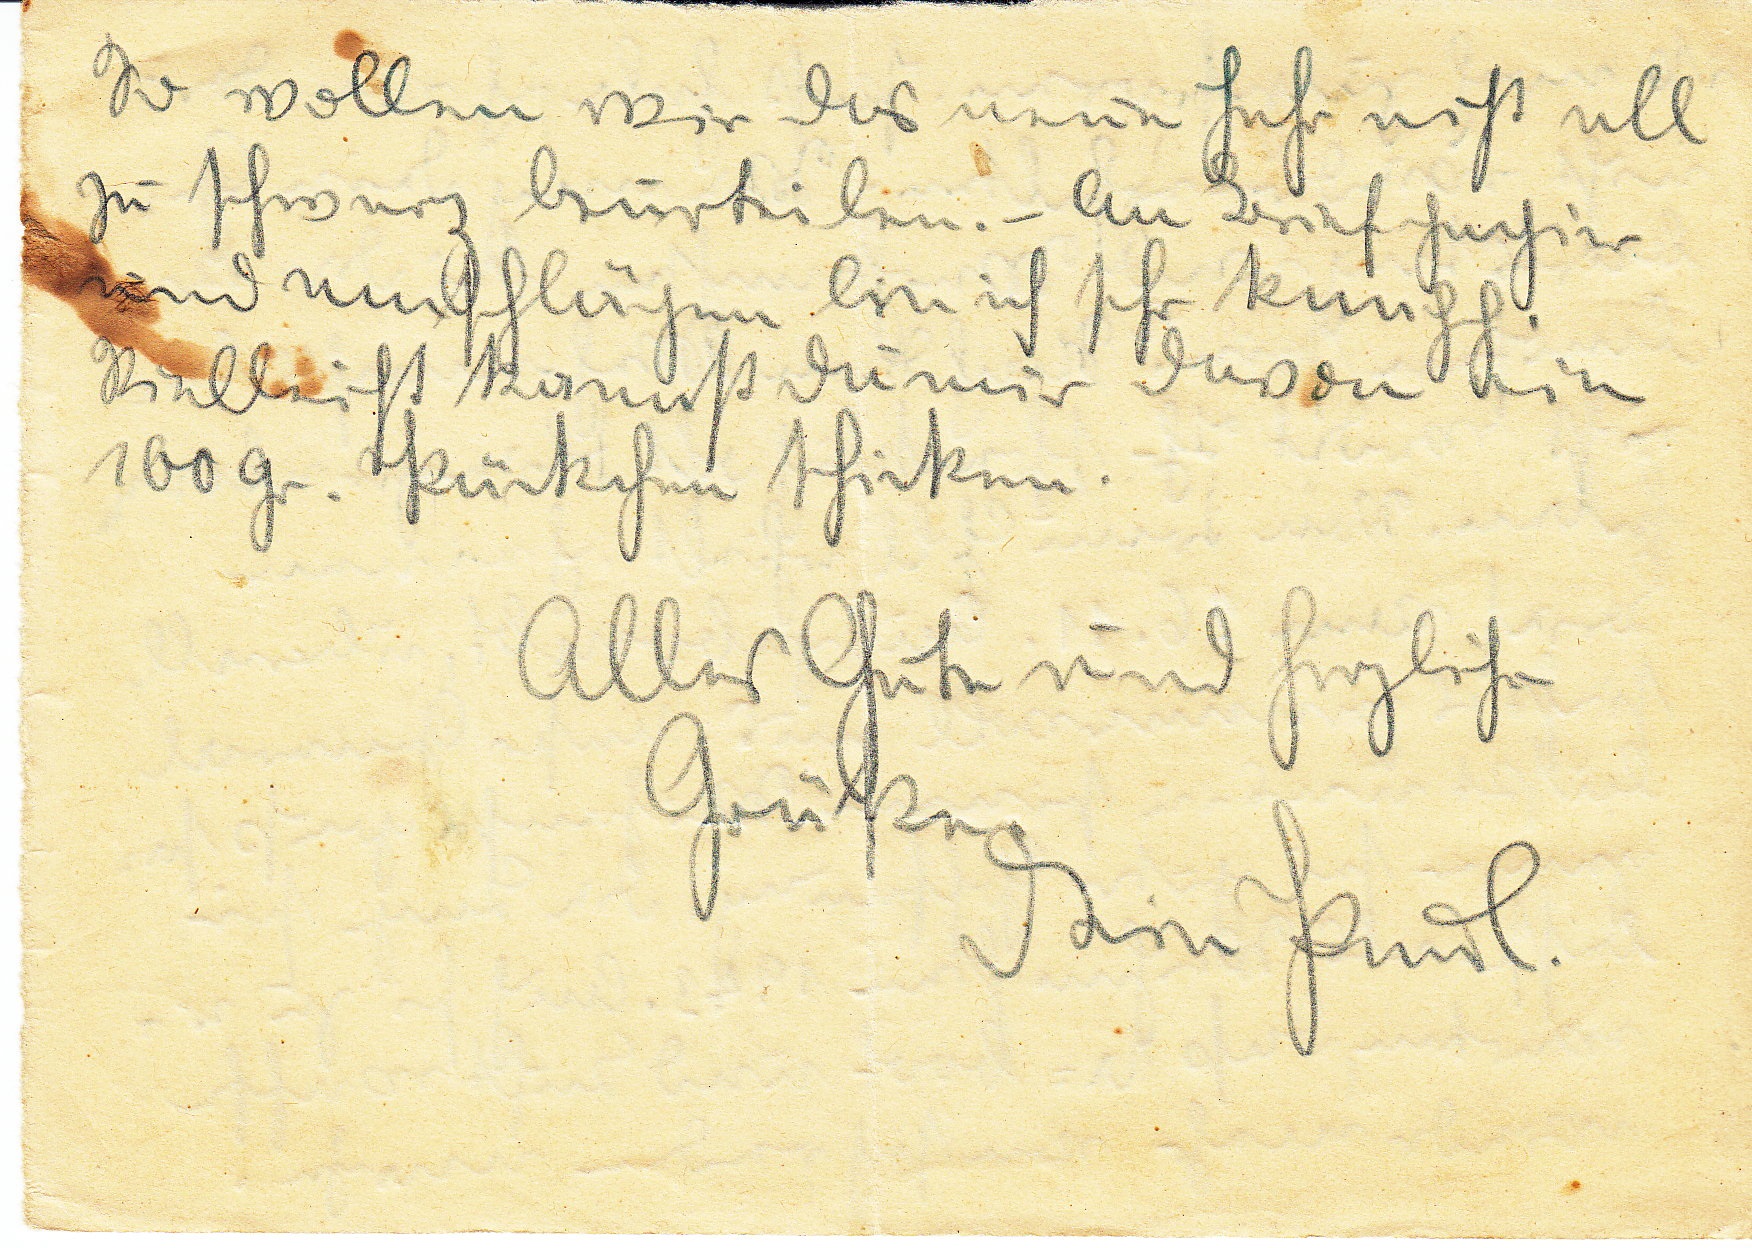 So wollen wir das neue Jahr nicht all
zu schwarz beurteilen. – An Briefpapier
und umschlägen bin ich sehr knapp.
Vielleicht kannst du mir davon ein
100 gr. Päckchen schicken.
Alles Gute und herzliche
Grüße
Dein